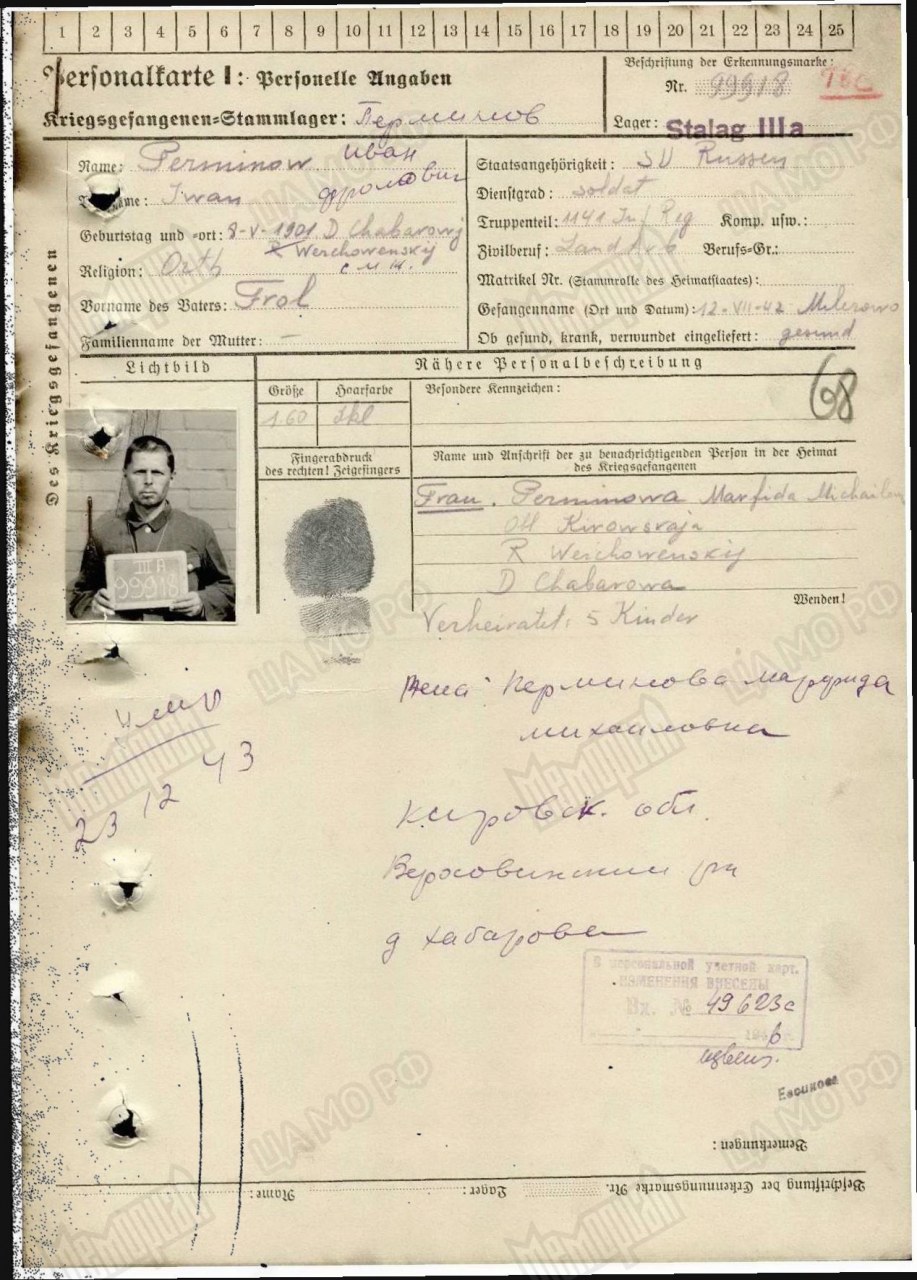 1 2 3 4 5 6 7 8 9 10 11 12 13 14 15 16 17 18 19 20 21 22 23 24 25
Personalkarte I: Personelle Angaben
Kriegsgefangenen-Stammlager: Перминов
Beschriftung der Erkennungsmarke:
Nr. 99918 Tbc
Lager: Stalag IIIa
Des Kriegsgefangenen
Name: Perminow Иван
Iwan Фролович
Geburtstag und -ort: 8-V-1901 D Chabarowj
R Werchowenskij
Religion: Orth
Vorname des Vaters: Frol
Familienname der Mutter: —
Staatsangehörigkeit: SU Russen
Dienstgrad: Soldat
Truppenteil: 1141 Inf Reg Komp. usw.:
Zivilberuf: Berufs-Gr.:
Matrikel Nr. (Stammrolle des Heimatstaates):
Gefangennahme (Ort und Datum): 12-VII-42 Milerowo
Ob gesund, krank, verwundet eingeliefert: gesund
Lichtbild
Nähere Personalbeschreibung
Größe Haarfarbe Besondere Kennzeichen:
1.60 dkl
68
Fingerabdruck
des rechten! Zeigefingers
Name und Anschrift der zu benachrichtigenden Person in der Heimat
des Kriegsgefangenen
Frau. Perminowa Marfida Michailow
Obl Kirowskaja
R Werchowenskij
D Chabarowa
Wenden!
Verheiratet: 5 Kinder
III A
99918
Жена Перминова Марфида
Михайловна
умер
23 12 43
Кировск. обл.
д Хабарова
В персональной учетной карт.
ИЗМЕНЕНИЯ ВНЕСЕНЫ
Вх. № 49623с
1946 г.
извещ.
Bemerkungen:
Beschriftung der Erkennungsmarke Nr. Lager: Name:
ЦАМО РФ
Мемориал